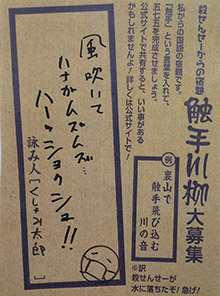 殺せんせーからの宿題
触手川柳大募集
私からの国語の宿題です。
「触手」という言葉を入れて、
五七五を完成させましょう。
公式サイトで共有すると、いい事がある
かもしれませんよ！詳しくは公式サイトで！
例
裏山で
触手飛び込む
川の音
※訳
殺せんせーが
水に落ちたぞ！急げ！
風吹いて
ハナがムズムズ…
ハーッショクシュ!!
詠み人［くしゃみ太郎］